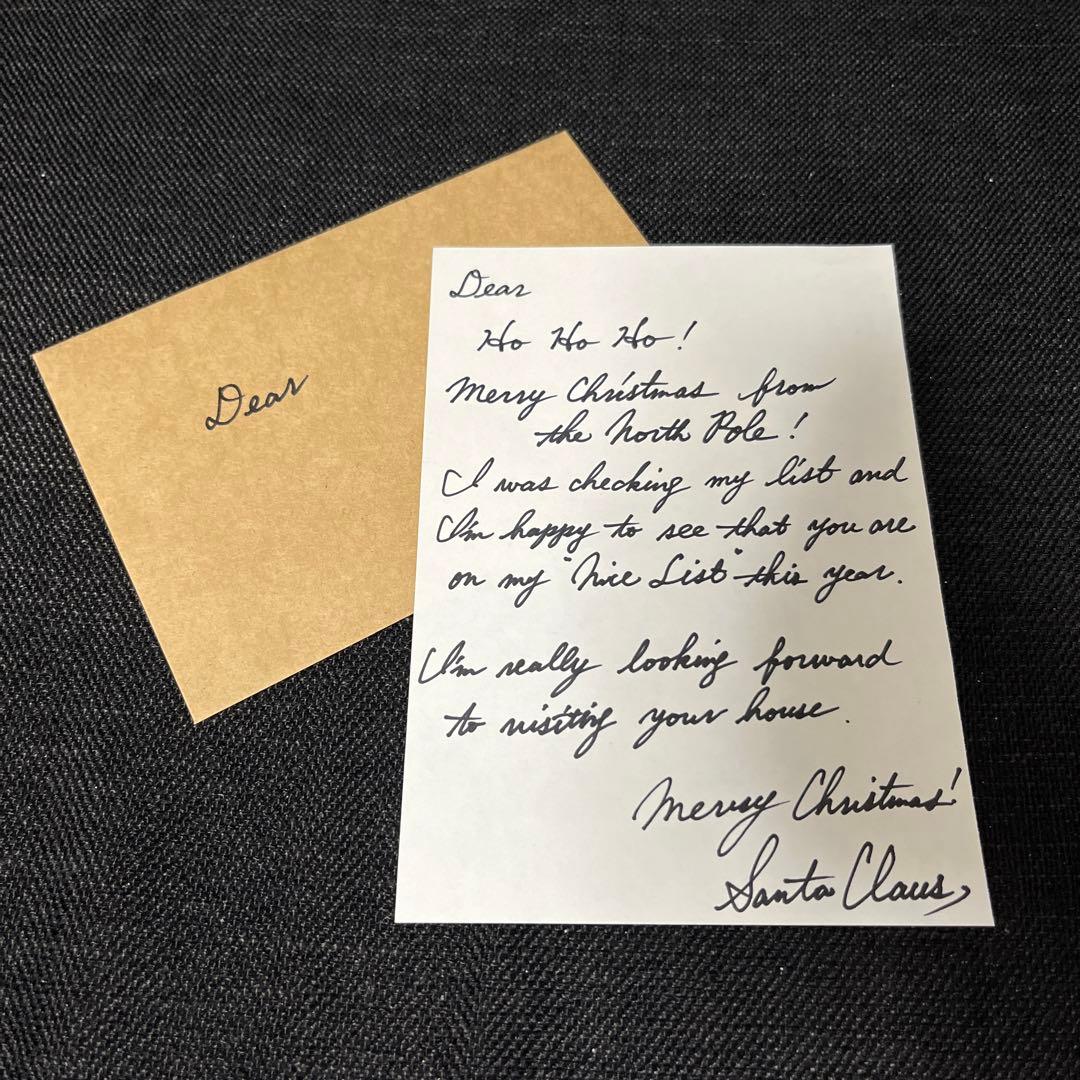 Dear
Dear
Ho Ho Ho!
Merry Christmas from
the North Pole!
I was checking my list and
I'm happy to see that you are
on my "Nice List" this year.
I'm really looking forward
to visiting your house.
Merry Christmas!
Santa Claus